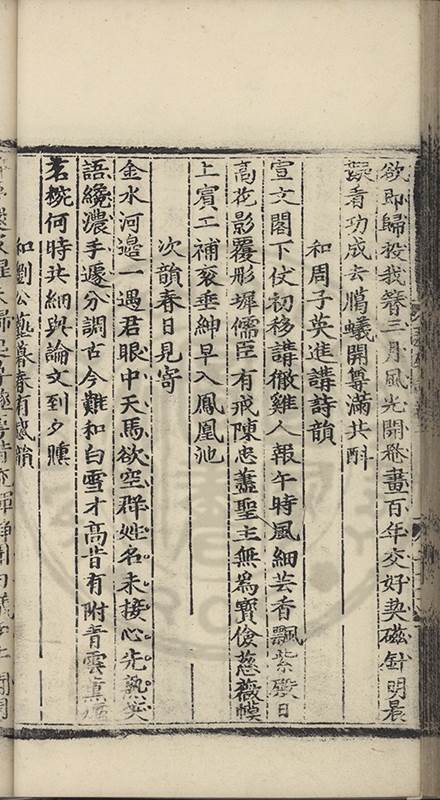 欲即歸投我簪三月風光開罨畫百年交好契磁針明晨
誤看功成去臈蟻開尊滿共酙
和周子英進講詩韻
宣文閣下仗初移講徹雞人報午時風細芸香飄紫殿日
高花影覆彤墀儒臣有戒陳忠藎聖主無為寶儉慈薇幙
上賓工補衮垂紳早入鳳凰池
次韻春日見寄
金水河邊一遇君眼中天馬欲空群姓名未接心先熟笑
語纔濃手遽分調古今難和白雪才高昔有附青雲熏爐
茗椀何時共細與論文到夕曛
和劉公藝暮春有感韻